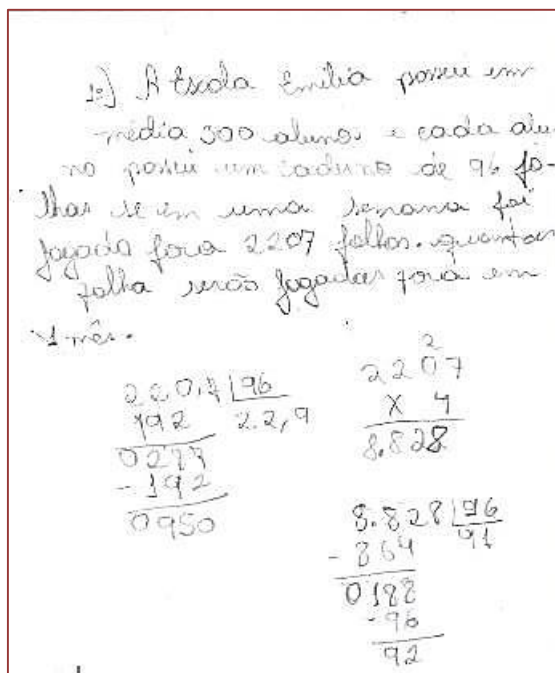 1º) A Escola Emília possui em
média 300 alunos e cada alu
no possui um caderno de 96 fo-
lhas se em uma semana foi
jogada fora 2207 folhas. quantas
folha serão jogadas fora em
1 mês.
220,7 |96
192 22,9
0287
- 192
0950
2
2207
X 4
8.828
8.828 |96
- 864 91
0188
- 96
92